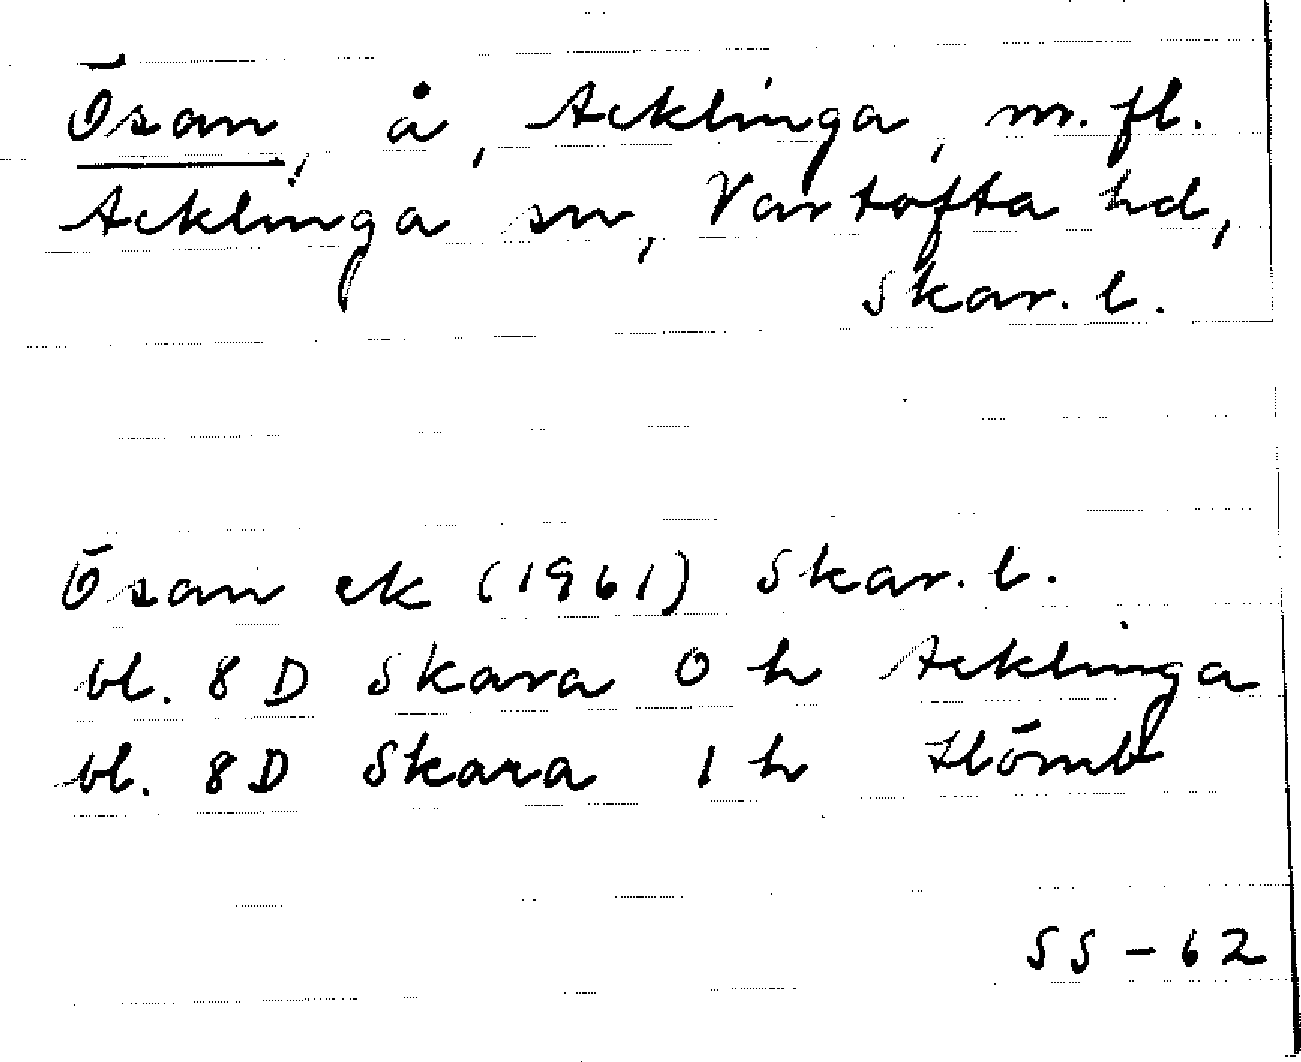 Ösan, å, Acklinga, m. fl.
Acklinga sn, Vartofta hd,
Skar. l.
Ösan ek (1961) Skar. l.
bl. 8 D Skara 0 h Acklinga
bl. 8 D Skara 1 h Hömb
SS - 62